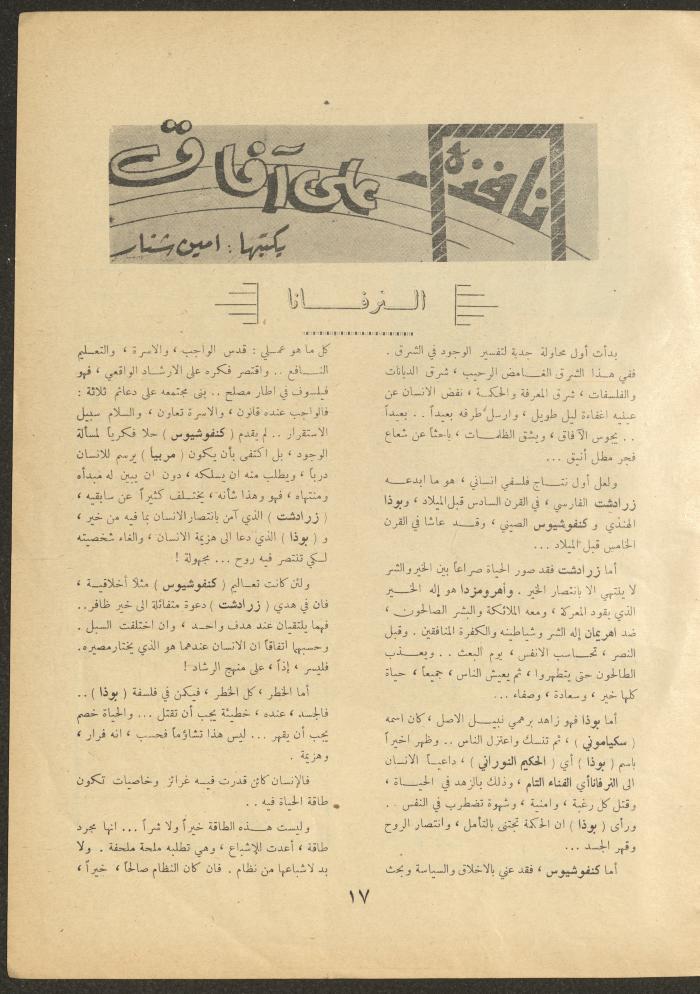 نافذة على آفاق
يكتبها : امين شنار
النرفانا
بدأت أول محاولة جدية لتفسير الوجود في الشرق .
ففي هذا الشرق الغامض الرحيب ، شرق الديانات
والفلسفات ، شرق المعرفة والحكمة ، نفض الانسان عن
عينيه اغفاءة ليل طويل ، وارسل طرفه بعيداً .. بعيداً
.. يجوس الآفاق ، ويشق الظلمات ، باحثاً عن شعاع
فجر مطل أنيق ...
ولعل أول نتاج فلسفي انساني ، هو ما ابدعه
زرادشت الفارسي ، في القرن السادس قبل الميلاد ، وبوذا
الهندي و كنفوشيوس الصيني ، وقد عاشا في القرن
الخامس قبل الميلاد ...
أما زرادشت فقد صور الحياة صراعاً بين الخير والشر
لا ينتهي الا بانتصار الخير . وأهرومزدا هو إله الخير
الذي يقود المعركة ، ومعه الملائكة والبشر الصالحون ،
ضد اهريمان إله الشر وشياطينه والكفرة المنافقين . وقبل
النصر ، تحاسب الانفس ، يوم البعث .. ويعذب
الطالحون حتى يتطهروا ، ثم يعيش الناس ، جميعاً ، حياة
كلها خير ، وسعادة ، وصفاء ...
أما بوذا فهو زاهد برهمي نبيل الاصل ، كان اسمه
( سكياموني ) ، ثم تنسك واعتزل الناس .. وظهر اخيراً
باسم ( بوذا ) أي ( الحكيم النوراني ) ، داعياً الانسان
الى النرفانا أي الفناء التام ، وذلك بالزهد في الحياة ،
وقتل كل رغبة ، وامنية ، وشهوة تضطرب في النفس ..
ورأى ( بوذا ) ان الحكمة تجتنى بالتأمل ، وانتصار الروح
وقهر الجسد ...
أما كنفوشيوس ، فقد عني بالاخلاق والسياسة وبحث
كل ما هو عملي : قدس الواجب ، والاسرة ، والتعليم
النافع .. واقتصر فكره على الارشاد الواقعي ، فهو
فيلسوف في اطار مصلح .. بنى مجتمعه على دعائم ثلاثة :
فالواجب عنده قانون ، والاسرة تعاون ، والسلام سبيل
الاستقرار .. لم يقدم ( كنفوشيوس ) حلا فكرياً لمسألة
الوجود ، بل اكتفى بأن يكون ( مربياً ) يرسم للانسان
درباً ، ويطلب منه ان يسلكه ، دون ان يبين له مبدأه
ومنتهاه ، فهو وهذا شأنه ، يختلف كثيراً عن سابقيه ،
( زرادشت ) الذي آمن بانتصار الانسان بما فيه من خير ،
و ( بوذا ) الذي دعا الى هزيمة الانسان ، والغاء شخصيته
لكي تنتصر فيه روح ... مجهولة !
ولئن كانت تعاليم ( كنفوشيوس ) مثلاً أخلاقية ،
فان في هدي ( زرادشت ) دعوة متفائلة الى خير ظافر ..
فهما يلتقيان عند هدف واحد ، وان اختلفت السبل .
وحسبهما اتفاقاً ان الانسان عندهما هو الذي يختار مصيره.
فليسر ، إذاً ، على منهج الرشاد !
أما الخطر ، كل الخطر ، فيكمن في فلسفة ( بوذا ) ..
فالجسد ، عنده ، خطيئة يجب أن تقتل ... والحياة خصم
يجب أن يقهر ... ليس هذا تشاؤماً فحسب ، انه فرار ،
وهزيمة .
فالإنسان كائن قدرت فيه غرائز وخاصيات تكون
طاقة الحياة فيه ..
وليست هذه الطاقة خيراً ولا شراً ... انها مجرد
طاقة ، أعدت للإشباع ، وهي تطلبه ملحة ملحفة . ولا
بد لاشباعها من نظام . فان كان النظام صالحاً ، خيراً ،
١٧